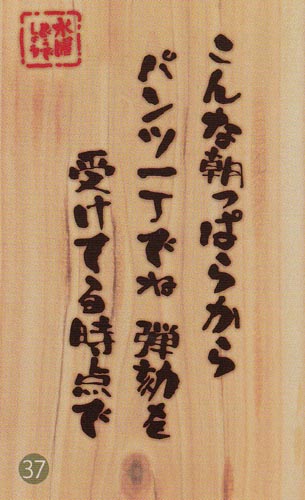 こんな朝っぱらから
パンツ一丁でね 弾劾を
受けてる時点で
水曜
どうで
しょう
37